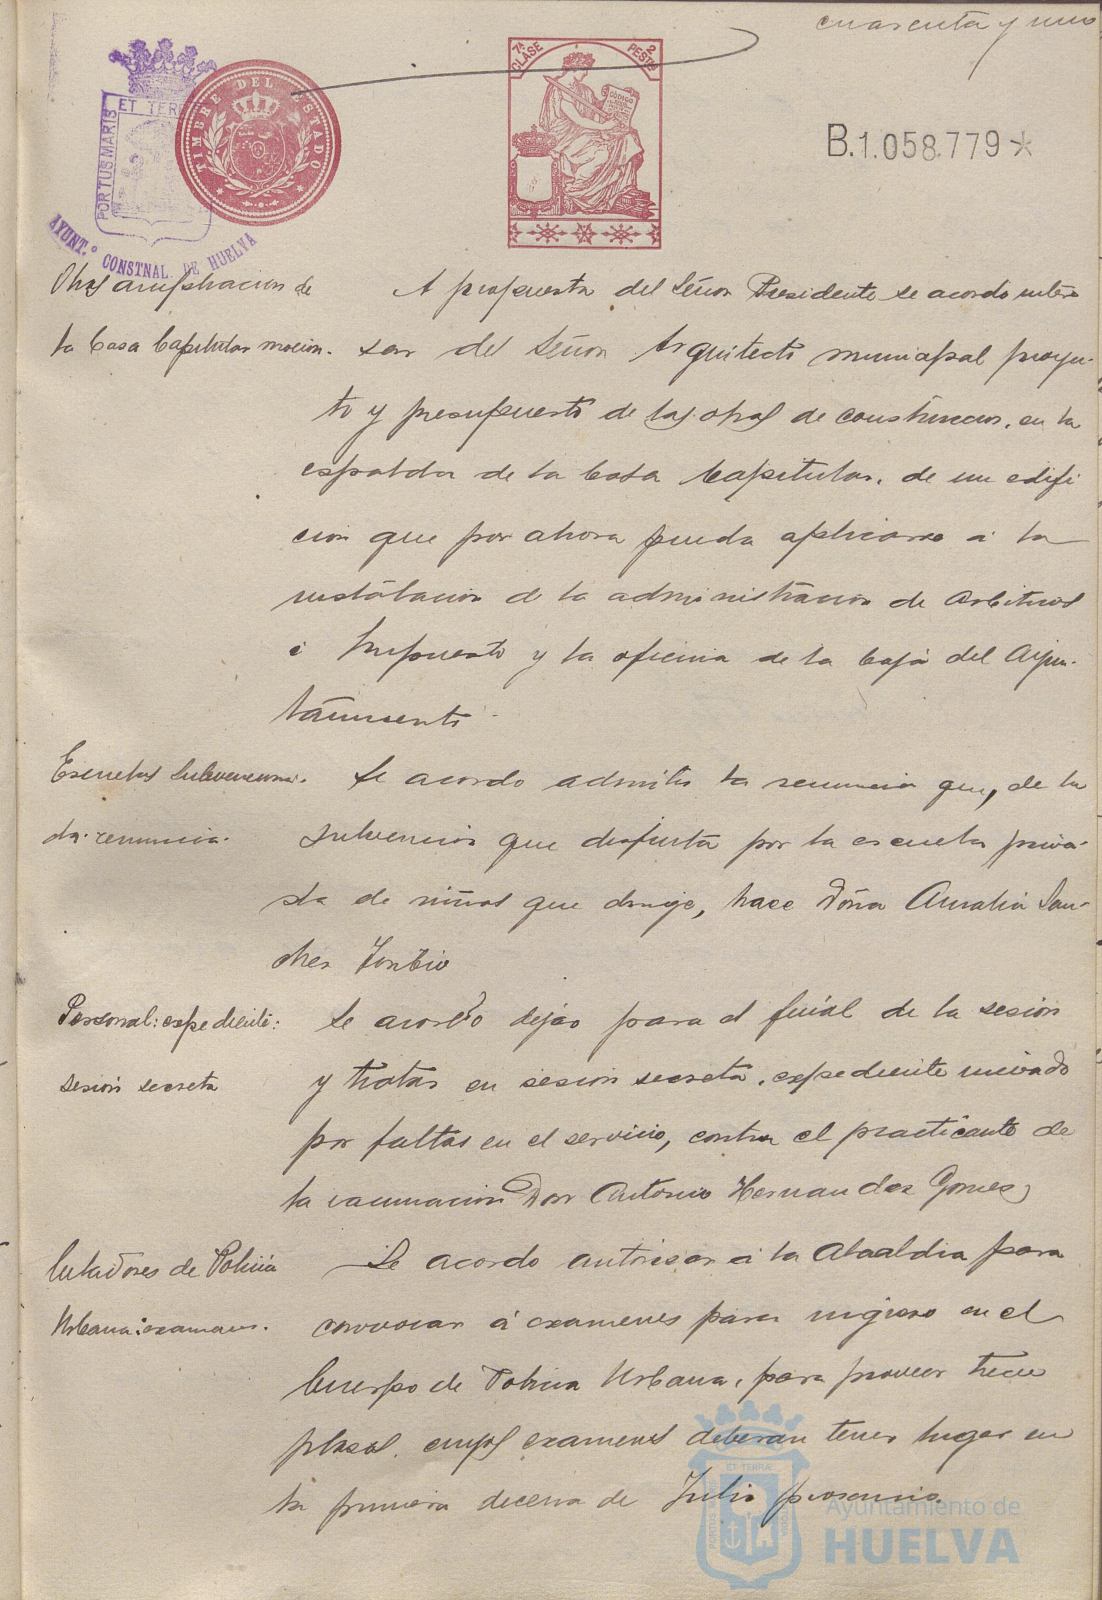 cuarenta y uno
7ª CLASE
2 PESTS
CÓDIGO
TIMBRE DEL ESTADO
PORTUS MARIS ET TERR
AYUNT.º CONSTNAL. DE HUELVA
B.1.058.779
Obras ampliacion de
la Casa Capitular mocion.
A propuesta del Señor Presidente se acordo intere
sar del Señor Arquitecto municipal proyec-
to y presupuesto de las obras de construccion, en la
espalda de la Casa Capitular, de un edifi
cion que por ahora pueda aplicarse á la
instalacion de la administracion de Arbitrios
é Impuesto y la oficina de la Caja del Ayun-
tamiento.
Escuelas subvenciona-
da: renuncia.
Se acordo admitir la renuncia que, de la
subvencion que disfruta por la escuela priva-
da de niños que dirije, hace Doña Amalia San-
chez Toribio
Personal: expediente:
sesión secreta
Se acordo dejar para el final de la sesion
y tratar en sesion secreta, expediente iniciado
por faltas en el servicio, contra el practicante de
la vacunacion Don Antonio Hernandez Gomez
Celadores de Policia
Urbana: examenes.
Se acordo autorizar á la Alcaldia para
convocar á examenes para ingreso en el
Cuerpo de Policia Urbana, para proveer trece
plazas, cuyos examenes deberan tener lugar en
la primera decena de Julio proximo.
ET TERRÆ
Ayuntamiento de
HUELVA